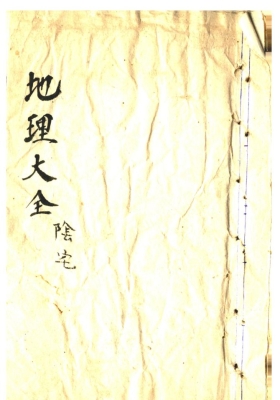 地理大全
陰宅